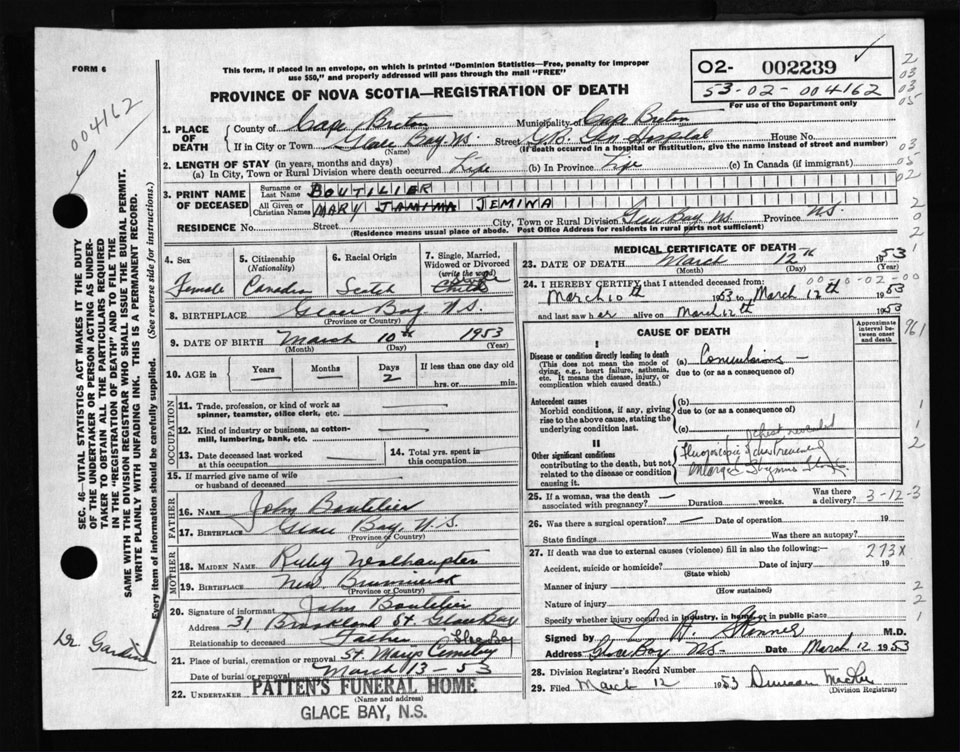 FORM 6
This form, if placed in an envelope, on which is printed "Dominion Statistics—Free, penalty for improper
use $50," and properly addressed will pass through the mail "FREE"
PROVINCE OF NOVA SCOTIA—REGISTRATION OF DEATH
02- 002239
53-02-004162
For use of the Department only
004162
SEC. 46—VITAL STATISTICS ACT MAKES IT THE DUTY
OF THE UNDERTAKER OR PERSON ACTING AS UNDER-
TAKER TO OBTAIN ALL THE PARTICULARS REQUIRED
IN THE "REGISTRATION OF DEATH" AND TO FILE THE
SAME WITH THE DIVISION REGISTRAR WHO SHALL ISSUE THE BURIAL PERMIT.
WRITE PLAINLY WITH UNFADING INK. THIS IS A PERMANENT RECORD.
Every item of information should be carefully supplied. (See reverse side for instructions.)
Dr Gardin
1. PLACE OF DEATH County of Cape Breton Municipality of Cape Breton
If in City or Town Glace Bay N.S. Street G.B. Gen Hospital House No.
(Name) (If death occurred in a hospital or institution, give the name instead of street and number)
2. LENGTH OF STAY (in years, months and days)
(a) In City, Town or Rural Division where death occurred Life (b) In Province Life (c) In Canada (if immigrant)
3. PRINT NAME OF DECEASED Surname or Last Name BOUTILIER
All Given or Christian Names MARY JAMIMA JEMIMA
RESIDENCE No. Street City, Town or Rural Division Glace Bay N.S. Province N.S.
(Residence means usual place of abode. Post Office Address for residents in rural parts not sufficient)
4. Sex Female
5. Citizenship (Nationality) Canadian
6. Racial Origin Scotch
7. Single, Married, Widowed or Divorced (write the word)
8. BIRTHPLACE Glace Bay N.S.
(Province or Country)
9. DATE OF BIRTH March 10th 1953
(Month) (Day) (Year)
10. AGE in Years — Months Days 2 If less than one day old hrs. or min.
OCCUPATION
11. Trade, profession or kind of work as spinner, teamster, office clerk, etc.
12. Kind of industry or business, as cotton-mill, lumbering, bank, etc.
13. Date deceased last worked at this occupation
14. Total yrs. spent in this occupation
15. If married give name of wife or husband of deceased
FATHER
16. NAME John Boutilier
17. BIRTHPLACE Glace Bay, N.S.
(Province or Country)
MOTHER
18. MAIDEN NAME Ruby
19. BIRTHPLACE New Brunswick
(Province or Country)
20. Signature of informant John Boutilier
Address 31 Brookland St. Glace Bay
Relationship to deceased Father
21. Place of burial, cremation or removal St. Marys Cemetery
Date of burial or removal March 13-53
22. UNDERTAKER PATTEN'S FUNERAL HOME
(Name and address)
GLACE BAY, N.S.
MEDICAL CERTIFICATE OF DEATH
23. DATE OF DEATH March 12th 1953
(Month) (Day) (Year)
24. I HEREBY CERTIFY that I attended deceased from
March 10th 1953 to March 12th 1953
and last saw her alive on March 12th 1953
CAUSE OF DEATH
Approximate interval between onset and death
I
Disease or condition directly leading to death
(This does not mean the mode of dying, e.g., heart failure, asthenia, etc. It means the disease, injury, or complication which caused death.)
(a) Convulsions —
due to (or as a consequence of)
Antecedent causes
Morbid conditions, if any, giving rise to the above cause, stating the underlying condition last.
(b)
due to (or as a consequence of)
(c)
II
Other significant conditions
contributing to the death, but not related to the disease or condition causing it.
chest revealed
enlarged Thymus
25. If a woman, was the death associated with pregnancy? — Duration weeks. Was there a delivery? 3-12-3
26. Was there a surgical operation? — Date of operation 19
State findings Was there an autopsy?
27. If death was due to external causes (violence) fill in also the following:— 273X
Accident, suicide or homicide? Date of injury 19
(State which)
Manner of injury
(How sustained)
Nature of injury
Specify whether injury occurred in industry, in home, or in public place
Signed by M.D.
Address Glace Bay N.S. Date March 12 1953
28. Division Registrar's Record Number
29. Filed March 12 1953 Duncan
(Division Registrar)